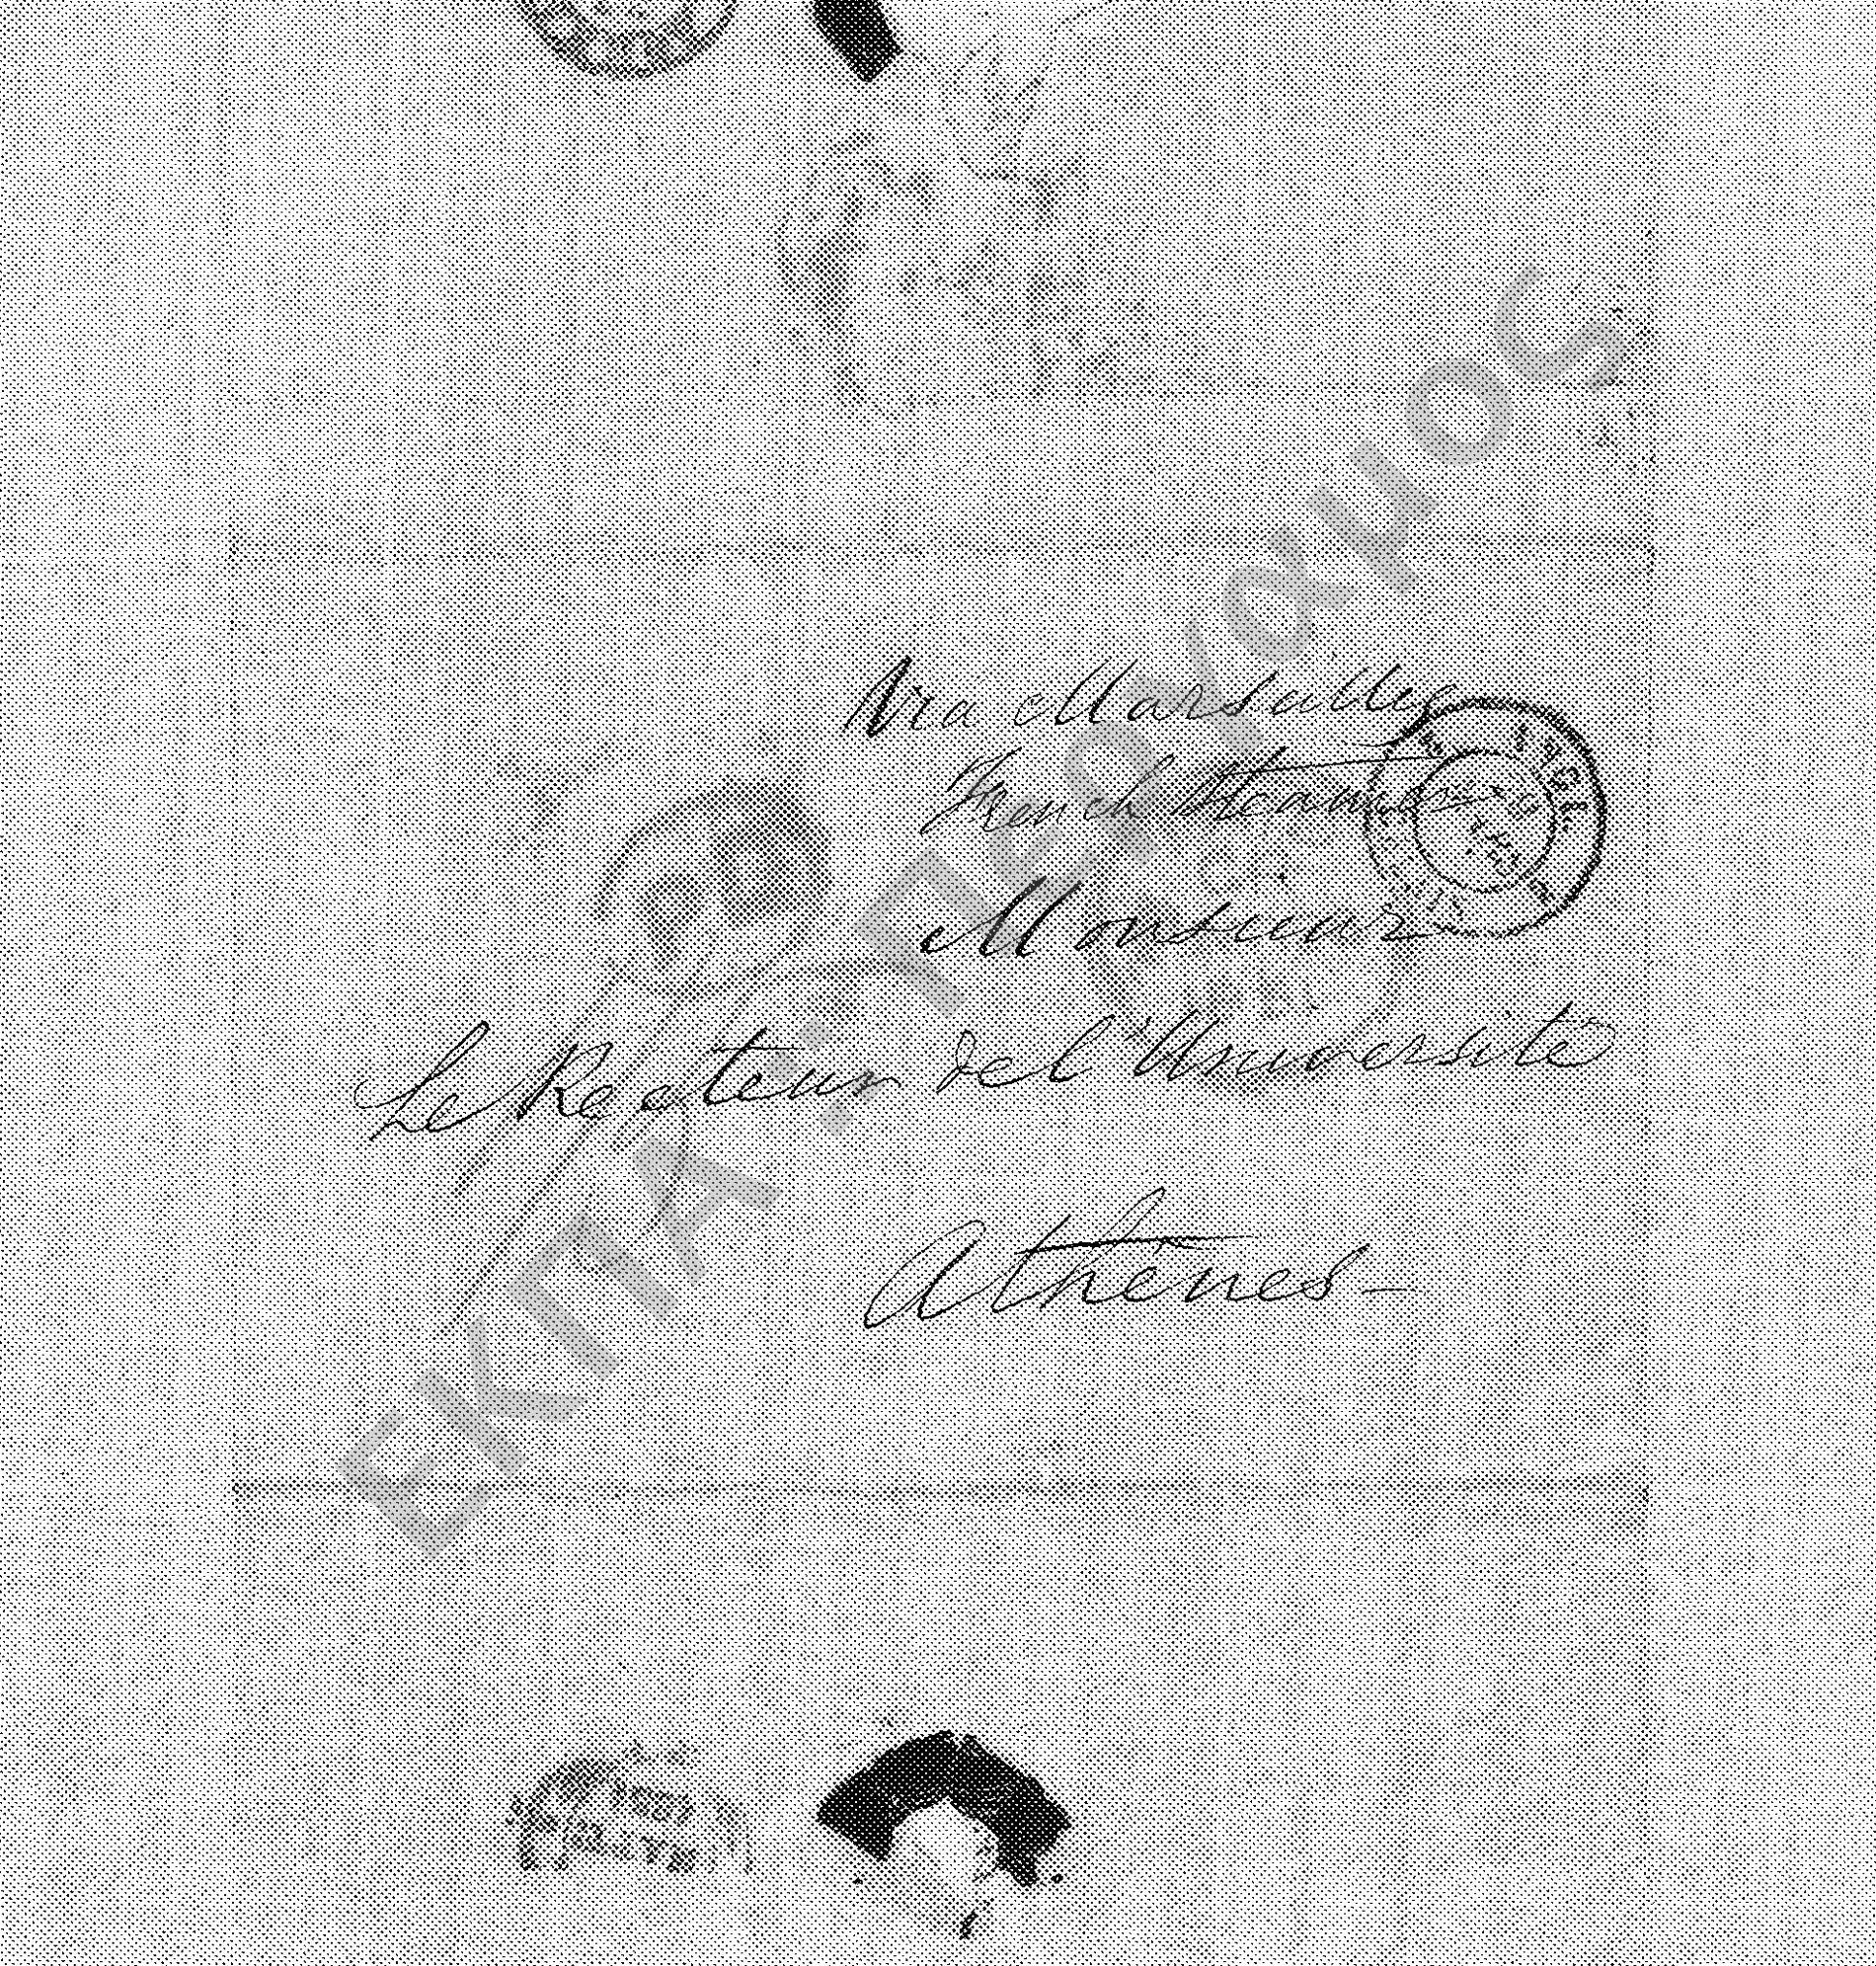 Via Marseilles
French Steamer
Monsieur
Le Recteur de l'Université
Athènes -
ΕΚΠΑ "Πέργαμος